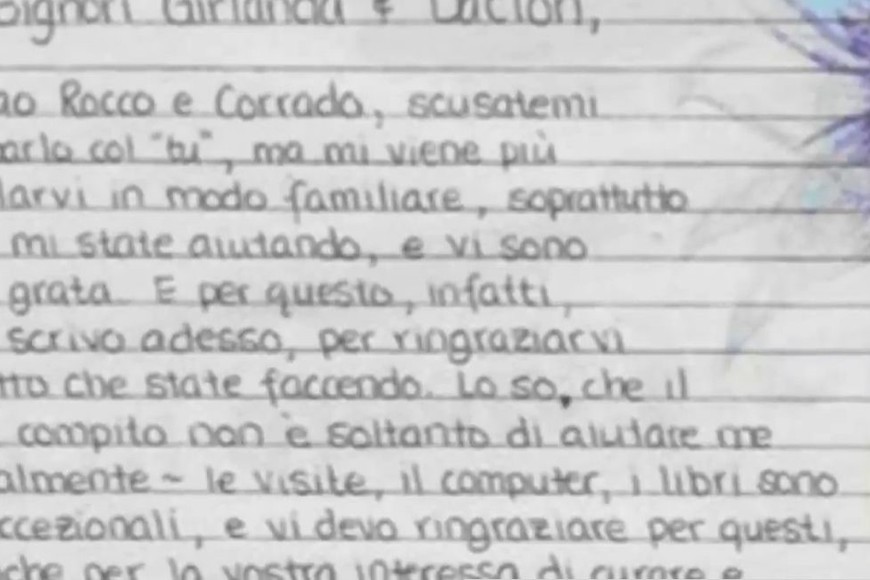 Signori Girlanda e Dacion,
ao Rocco e Corrado, scusatemi
arlo col "tu", ma mi viene più
larvi in modo familiare, soprattutto
mi state aiutando, e vi sono
grata. E per questo, infatti,
scrivo adesso, per ringraziarvi
tto che state faccendo. Lo so, che il
compito non è soltanto di aiutare me
almente ~ le visite, il computer, i libri sono
ccezionali, e vi devo ringraziare per questi,
che per la vostra interessa di curare e